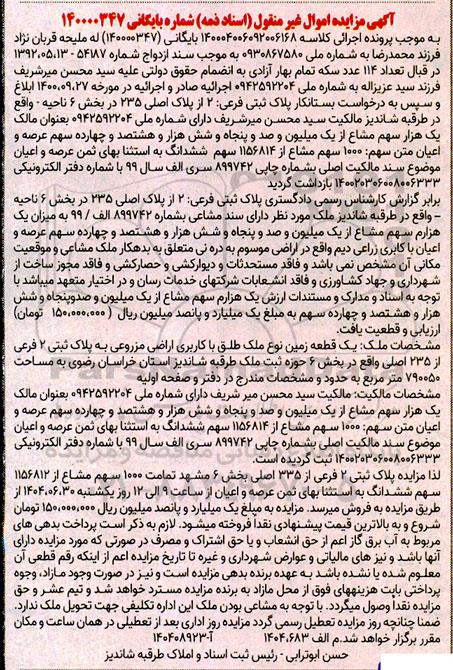 آگهی مزایده اموال غیر منقول (اسناد ذمه) شماره بایگانی ۱۴۰۰۰۰۳۴۷
به موجب پرونده اجرائی کلاسه ۱۴۰۰۰۴۰۰۶۰۹۲۰۰۶۱۶۸ بایگانی (۱۴۰۰۰۰۳۴۷) له ملیحه قربان نژاد
فرزند محمدرضا به شماره ملی ۰۹۳۰۸۶۷۵۸۰ به موجب سند ازدواج شماره ۵۴۱۸۷ - ۱۳۹۲.۰۵.۱۳
در قبال تعداد ۱۱۴ عدد سکه تمام بهار آزادی به انضمام حقوق دولتی علیه سید محسن میرشریف
فرزند سید عزیزاله به شماره ملی ۰۹۴۲۵۹۲۲۰۴ اجرائیه صادر و اجرائیه در مورخه ۱۴۰۰.۰۹.۲۷ ابلاغ
و سپس به درخواست بستانکار پلاک ثبتی فرعی: ۲ از پلاک اصلی ۲۳۵ در بخش ۶ ناحیه - واقع
در طرقبه شاندیز مالکیت سید محسن میرشریف دارای شماره ملی ۰۹۴۲۵۹۲۲۰۴ بعنوان مالک
یک هزار سهم مشاع از یک میلیون و صد و پنجاه و شش هزار و هشتصد و چهارده سهم عرصه و
اعیان متن سهم: ۱۰۰۰ سهم مشاع از ۱۱۵۶۸۱۴ سهم ششدانگ به استثنا بهای ثمن عرصه و اعیان
موضوع سند مالکیت اصلی بشماره چاپی ۸۹۹۷۴۲ سری الف سال ۹۹ با شماره دفتر الکترونیکی
۱۴۰۰۲۰۳۰۶۰۰۸۰۰۶۳۳۳ بازداشت گردید
برابر گزارش کارشناس رسمی دادگستری پلاک ثبتی فرعی: ۲ از پلاک اصلی ۲۳۵ در بخش ۶ ناحیه
- واقع در طرقبه شاندیز ملک مورد نظر دارای سند مشاعی بشماره ۸۹۹۷۴۲ الف / ۹۹ به میزان یک
هزارم سهم مشاع از یک میلیون و صد و پنجاه و شش هزار و هشتصد و چهارده سهم عرصه و
اعیان با کابری زراعی دیم واقع در اراضی موسوم به دره نی متعلق به بدهکار ملک مشاعی و موقعیت
مکانی آن مشخص نمی باشد و فاقد مستحدثات و دیوارکشی و حصارکشی و فاقد مجوز ساخت از
شهرداری و جهاد کشاورزی و فاقد انشعابات شرکتهای خدمات رسان و در اختیار متعهد میباشد با
توجه به اسناد و مدارک و مستندات ارزش یک هزارم سهم مشاع از یک میلیون و صدوپنجاه و شش
هزار و هشتصد و چهارده سهم به مبلغ یک میلیارد و پانصد میلیون ریال (۱۵۰,۰۰۰,۰۰۰ تومان)
ارزیابی و قطعیت یافت.
مشخصات ملک: یک قطعه زمین نوع ملک طلق با کاربری اراضی مزروعی به پلاک ثبتی ۲ فرعی
از ۲۳۵ اصلی واقع در بخش ۶ حوزه ثبت ملک طرقبه شاندیز استان خراسان رضوی به مساحت
۷۹۰۰۵۰ متر مربع به حدود و مشخصات مندرج در دفتر و صفحه اولیه
مشخصات مالکیت: مالکیت سید محسن میر شریف دارای شماره ملی ۰۹۴۲۵۹۲۲۰۴ بعنوان مالک
یک هزار سهم مشاع از یک میلیون و صد و پنجاه و شش هزار و هشتصد و چهارده سهم عرصه و
اعیان متن سهم: ۱۰۰۰ سهم مشاع از ۱۱۵۶۸۱۴ سهم ششدانگ به استثنا بهای ثمن عرصه و اعیان
موضوع سند مالکیت اصلی بشماره چاپی ۸۹۹۷۴۲ سری الف سال ۹۹ با شماره دفتر الکترونیکی
۱۴۰۰۲۰۳۰۶۰۰۸۰۰۶۳۳۳ ثبت گردیده است.
لذا مزایده پلاک ثبتی ۲ فرعی از ۲۳۵ اصلی بخش ۶ مشهد تمامت ۱۰۰۰ سهم مشاع از ۱۱۵۶۸۱۲
سهم ششدانگ به استثنا بهای ثمن عرصه و اعیان از ساعت ۹ الی ۱۲ روز یکشنبه ۱۴۰۴.۰۶.۳۰ از
طریق مزایده به فروش میرسد. مزایده به مبلغ یک میلیارد و پانصد میلیون ریال ۱۵۰,۰۰۰,۰۰۰ تومان
شروع و به بالاترین قیمت پیشنهادی نقدا فروخته میشود. لازم به ذکر است پرداخت بدهی های
مربوط به آب برق گاز اعم از حق انشعاب و یا حق اشتراک و مصرف در صورتی که مورد مزایده دارای
آنها باشد و نیز های مالیاتی و عوارض شهرداری و غیره تا تاریخ مزایده اعم از اینکه رقم قطعی آن
معلوم شده یا نشده باشد به عهده برنده مزایده است و نیز در صورت وجود مازاد، وجوه
پرداختی بابت هزینههای فوق از محل مازاد به برنده مزایده مسترد خواهد شد و نیم عشر و حق
مزایده نقدا وصول میگردد. با توجه به مشاعی بودن ملک این اداره تکلیفی جهت تحویل ملک ندارد.
ضمنا چنانچه روز مزایده تعطیل رسمی گردد مزایده روز اداری بعد از تعطیلی در همان ساعت و مکان
مقرر برگزار خواهد شد.م الف ۱۴۰۴.۶۸۳ آ-۱۴۰۴۰۸۹۲۳
حسن ابوترابی - رئیس ثبت اسناد و املاک طرقبه شاندیز